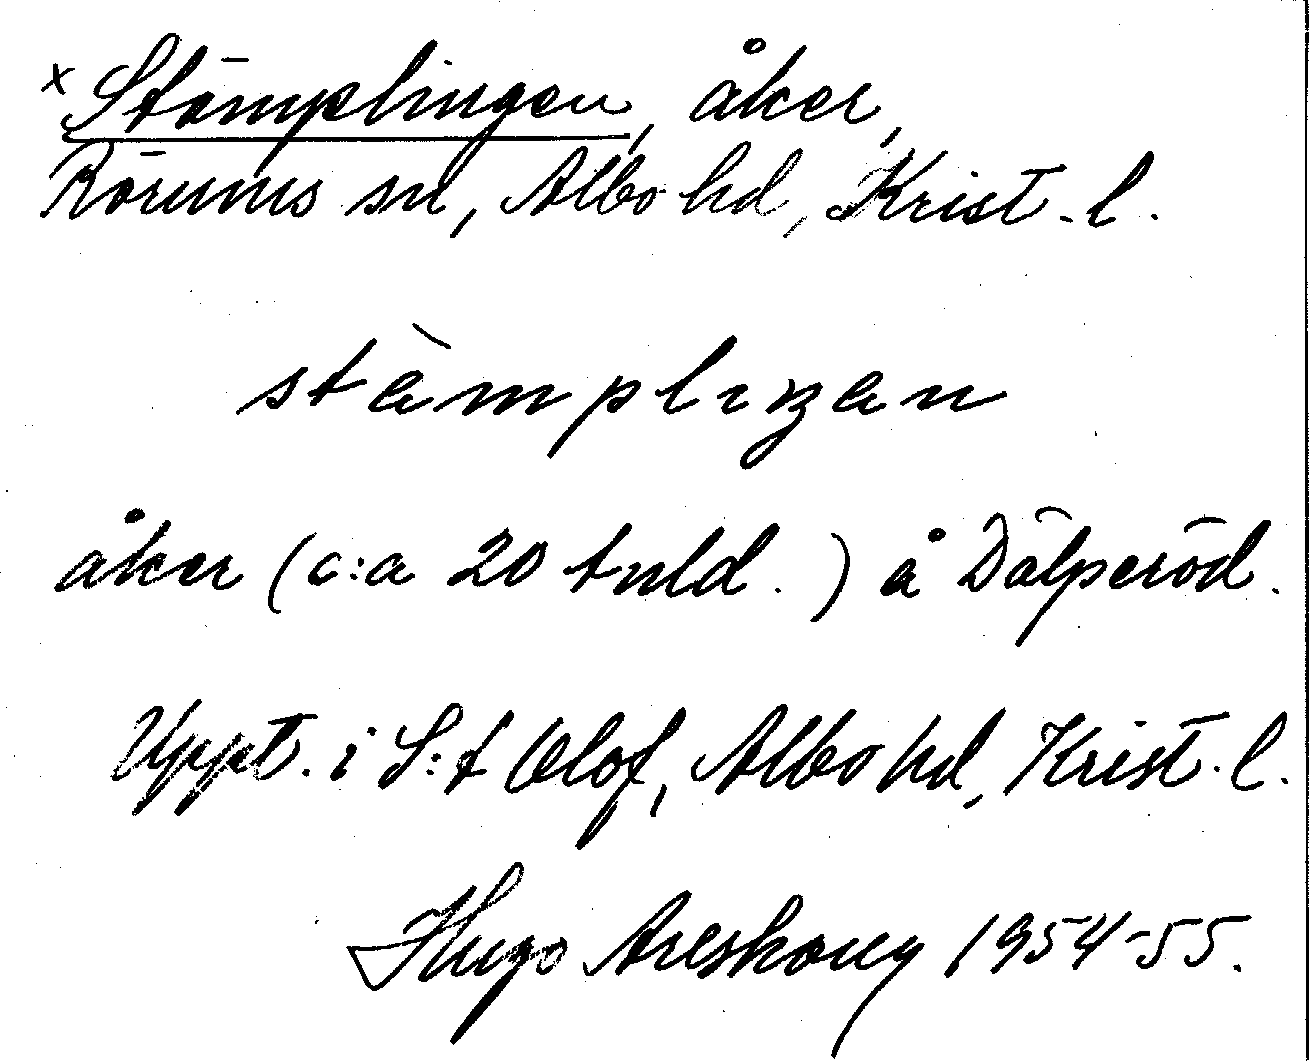 x Stämplingen, åker,
Rörums sn, Albo hd, Krist. l.
stàmplıŋen
åker (c:a 20 tnld.) å Dälperöd.
Uppt. i S:t Olof, Albo hd, Krist. l.
Hugo Areskoug 1954-55.